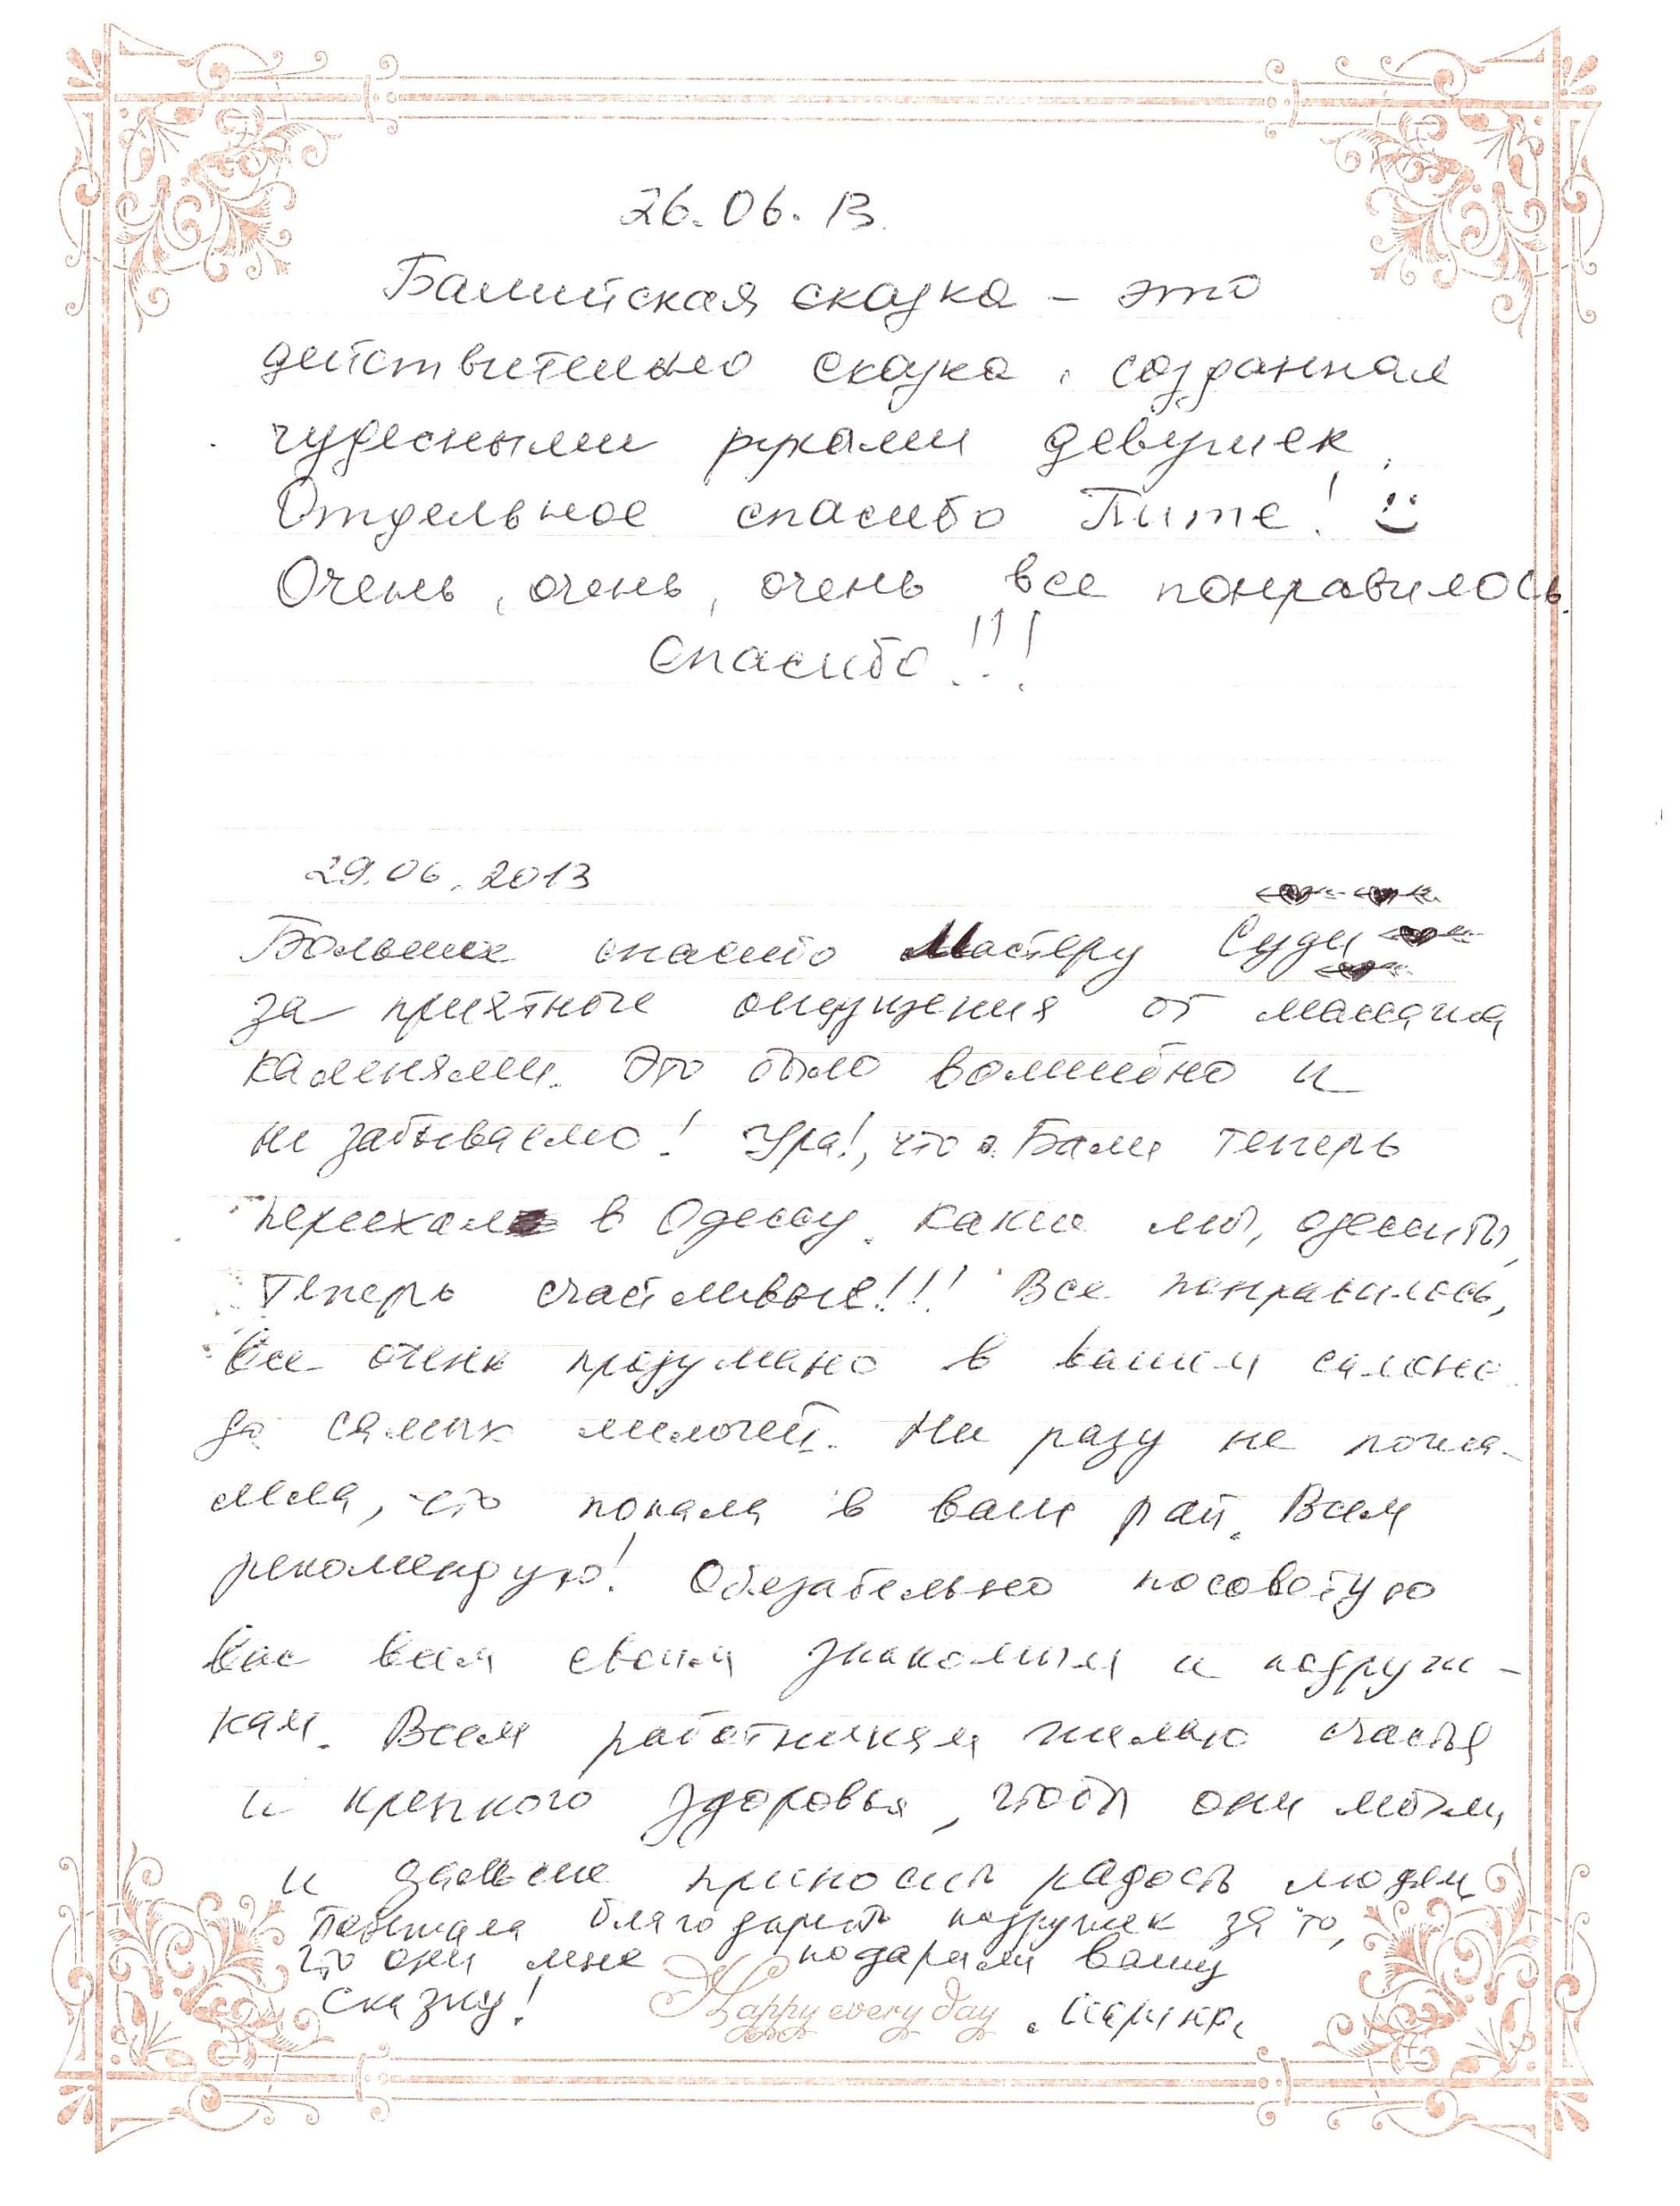 26.06.13.
Балийская сказка – это
действительно сказка, созданная
чудесными руками девушек.
Отдельное спасибо Пите!
Очень, очень, очень все понравилось.
Спасибо!!!
29.06.2013
Большое спасибо Мастеру Суди
за приятные ощущения от массажа
камнями. Это было волшебно и
не забываемо! Ура!, что о. Бали теперь
переехал в Одессу. Какие мы, одесситы,
теперь счастливые!!! Все понравилось,
все очень продумано в вашем салоне
до самых мелочей. Ни разу не пожа-
лела, что попала в ваш рай. Всем
рекомендую! Обязательно посоветую
Вас всем своим знакомым и подруж-
кам. Всем работникам желаю счастья
и крепкого здоровья, чтобы они могли
и дальше приносить радость людям
благодарить подружек за то,
что они мне подарили вашу
сказку! Happy every day Марина